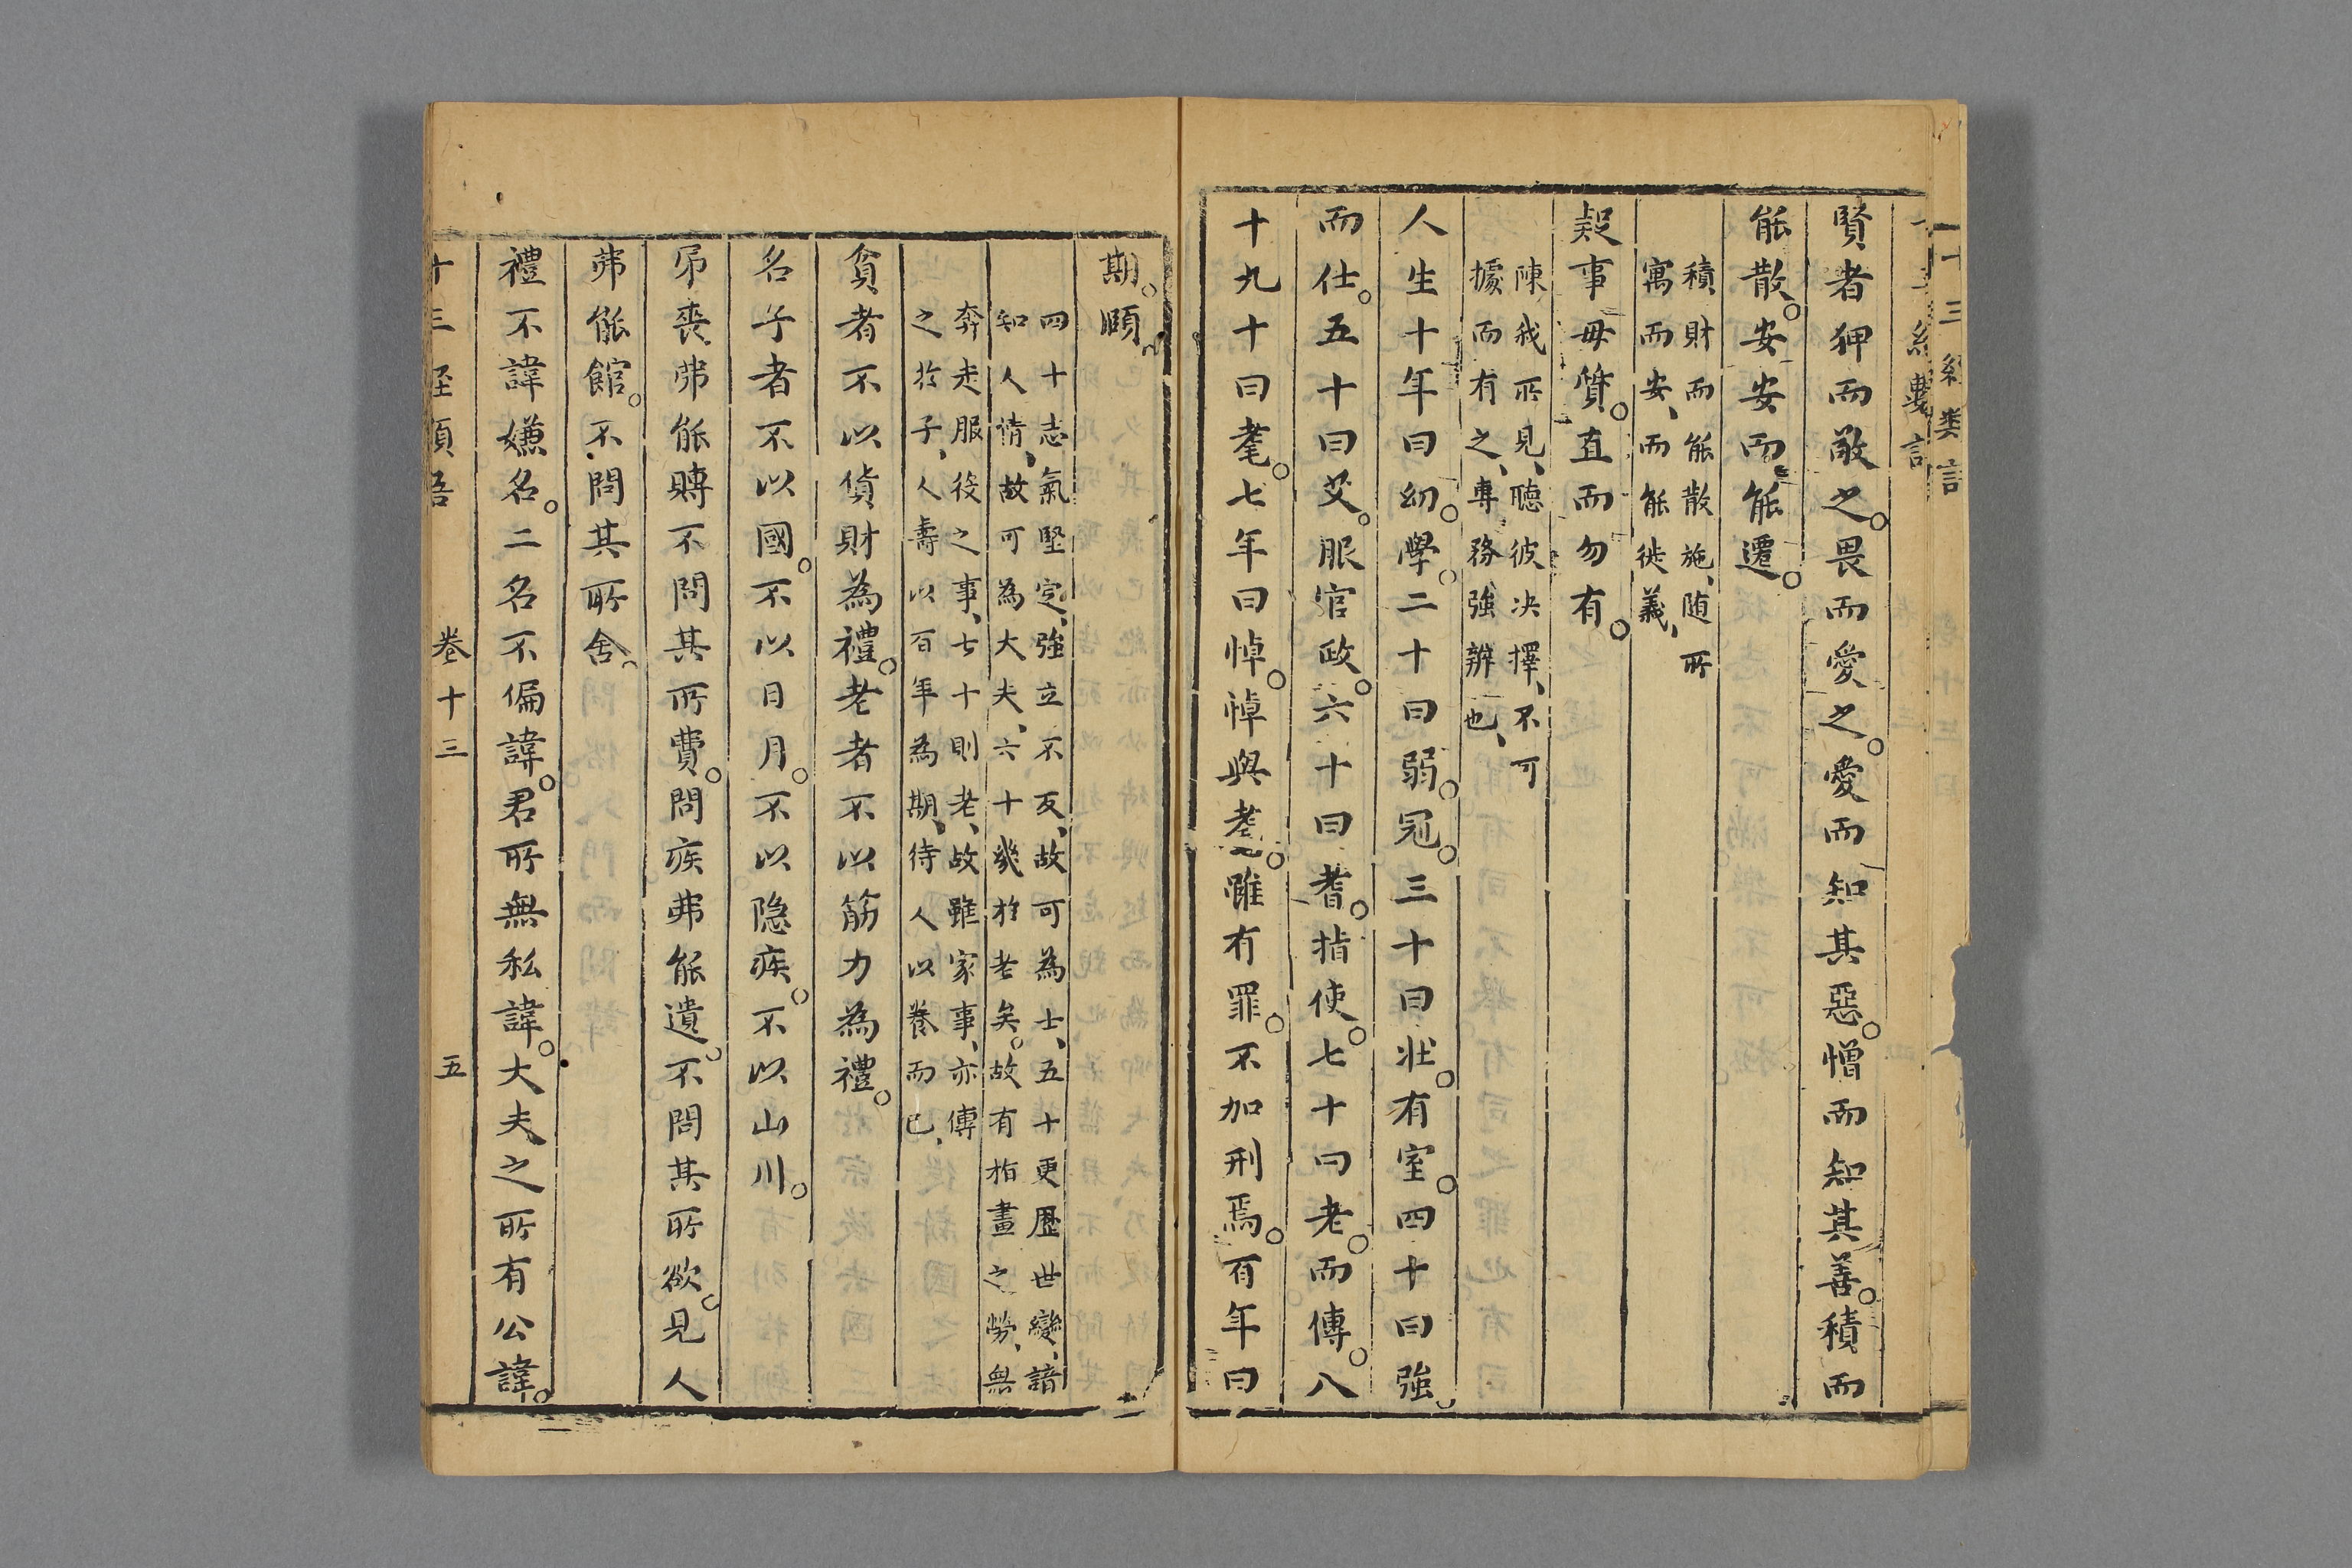 賢者狎而敬之。畏而愛之。愛而知其惡。憎而知其善。積而
能散。安安而能遷。
積財而能散施、随所
寓而安、而能徙義、
疑事毋質。直而勿有。
陳我所見、聽彼决擇、不可
據而有之、專務強辨也、
人生十年曰幼。學。二十曰弱。冠。三十曰壯。有室。四十曰強。
而仕。五十曰艾。服官政。六十曰耆。指使。七十曰老。而傳。八
十九十曰耄。七年曰悼。悼與耄。雖有罪。不加刑焉。百年曰
期。頤。
四十志氣堅定、強立不反、故可為士、五十更歷世變、諳
知人情、故可為大夫、六十幾於老矣。故有指畫之勞、無
奔走服役之事、七十則老、故雖家事、亦傳
之於子、人壽以百年為期、待人以養而已、
貧者不以貨財為禮。老者不以筋力為禮。
名子者不以國。不以日月。不以隐疾。不以山川。
弔喪弗能賻不問其所費。問疾弗能遺。不問其所欲。見人
弗能館。不問其所舍。
禮不諱嫌名。二名不偏諱。君所無私諱。大夫之所有公諱。
卷十三
五